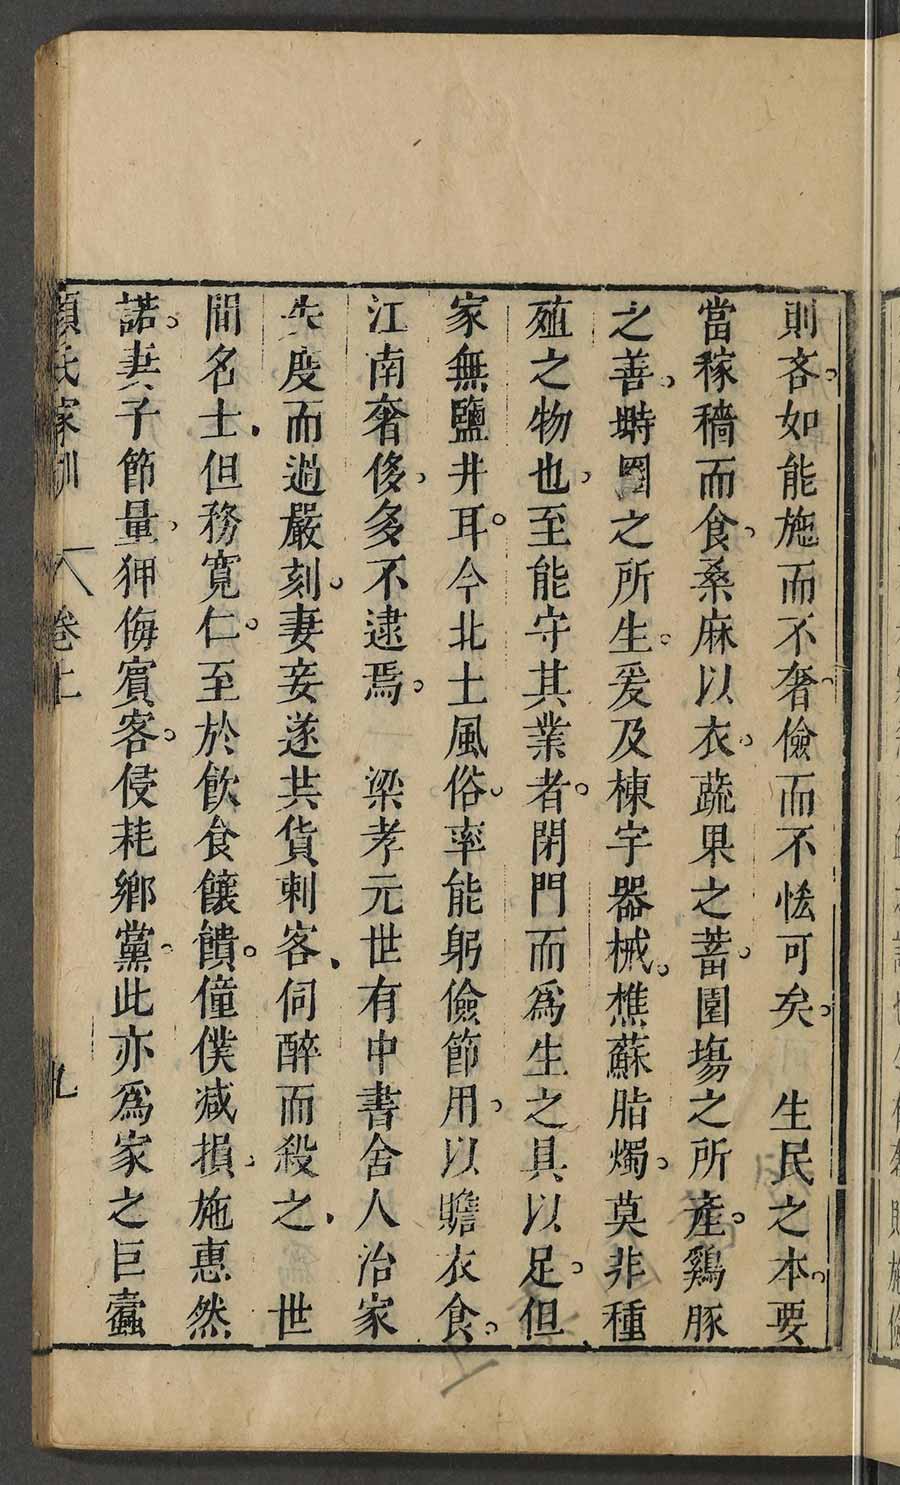 則吝。如能施而不奢、儉而不恡可矣。　生民之本。要
當稼穡而食、桑麻以衣。蔬果之蓄。園塲之所產。鷄豚
之善、塒圈之所生。爰及棟宇器械。樵蘇脂燭。莫非種
殖之物也、至能守其業者。閉門而爲生之具以足。但
家無鹽井耳。今北土風俗。率能躬儉節用、以贍衣食。
江南奢侈、多不逮焉。　梁孝元世有中書舍人治家
失度而過嚴刻。妻妾遂共貨刺客、伺醉而殺之、　世
間名士、但務寬仁。至於飲食饟饋。僮僕减損、施惠然
諾。妻子節量、狎侮賓客。侵耗鄉黨。此亦爲家之巨蠹
顏氏家訓　卷上　九